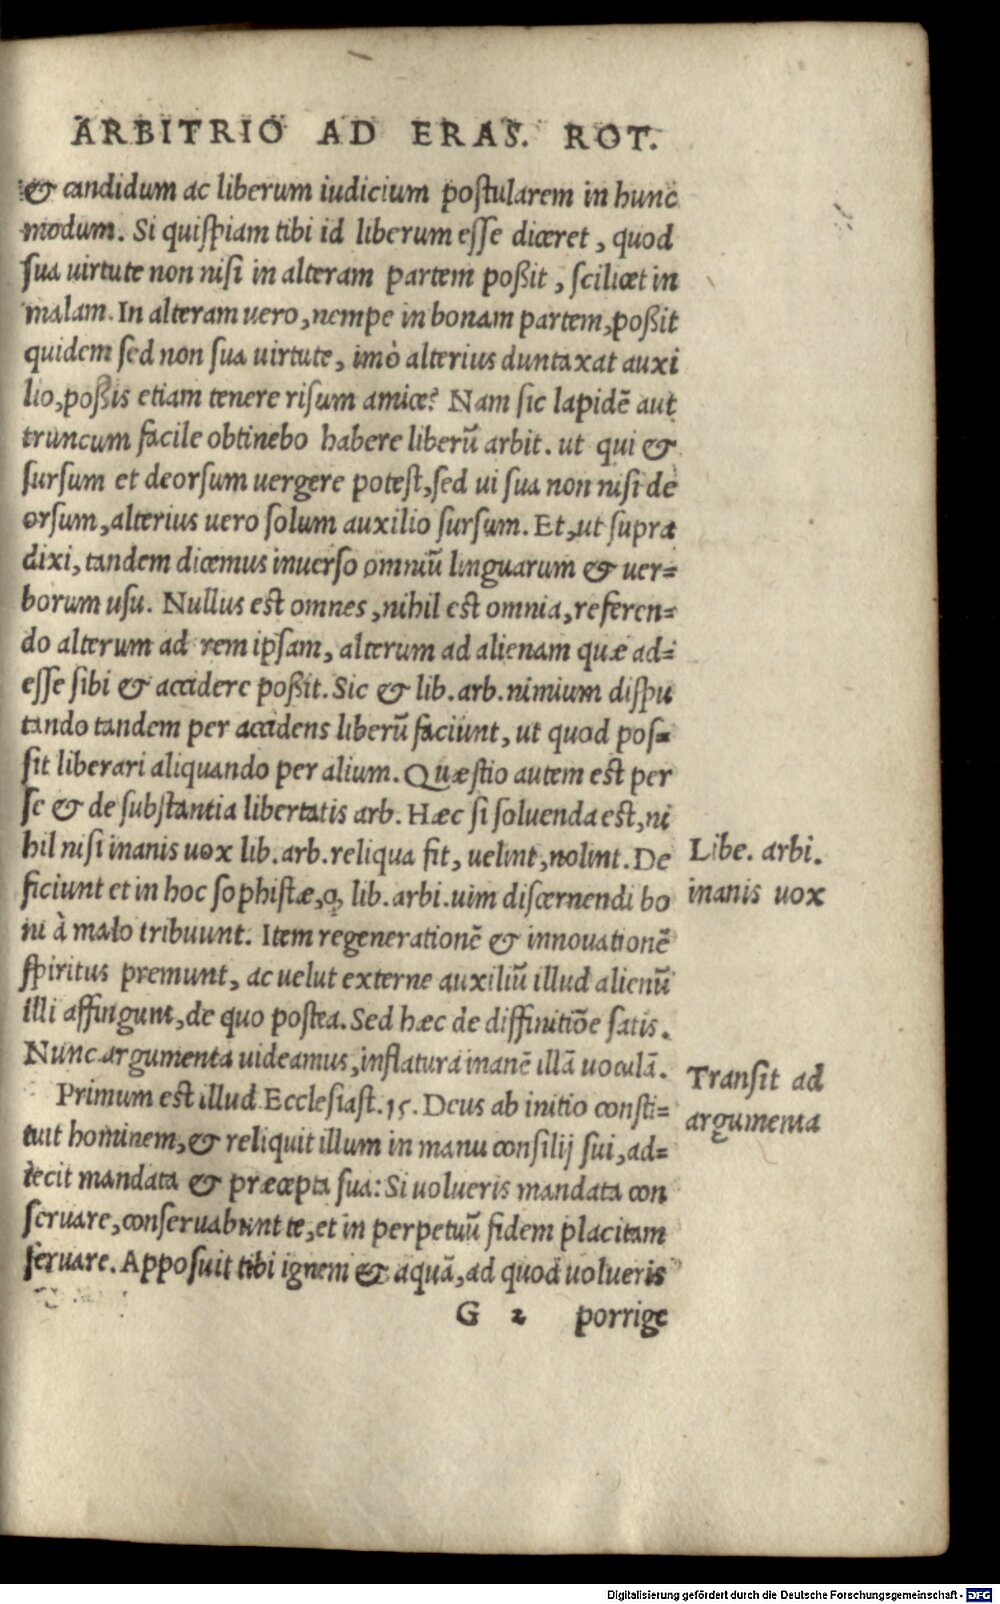 ARBITRIO AD ERAS. ROT.
& candidum ac liberum iudicium poſtularem in hunc
modum. Si quiſpiam tibi id liberum eſſe diceret, quod
ſua uirtute non niſi in alteram partem poßit, ſcilicet in
malam. In alteram uero, nempe in bonam partem, poßit
quidem ſed non ſua uirtute, imò alterius duntaxat auxi
lio, poßis etiam tenere riſum amice? Nam ſic lapidē aut
truncum facile obtinebo habere liberū arbit. ut qui &
ſurſum et deorſum uergere poteſt, ſed ui ſua non niſi de
orſum, alterius uero ſolum auxilio ſurſum. Et, ut ſupra
dixi, tandem dicemus inuerſo omniū linguarum & uer=
borum uſu. Nullus eſt omnes, nihil eſt omnia, referen=
do alterum ad rem ipſam, alterum ad alienam quæ ad=
eſſe ſibi & accidere poßit. Sic & lib. arb. nimium diſpu
tando tandem per accidens liberū faciunt, ut quod poſ=
ſit liberari aliquando per alium. Quæſtio autem eſt per
ſe & de ſubſtantia libertatis arb. Hæc ſi ſoluenda eſt, ni
hil niſi inanis uox lib. arb. reliqua fit, uelint, nolint. De
ficiunt et in hoc ſophiſtæ, ꝙ lib. arbi. uim diſcernendi bo
ni à malo tribuunt. Item regenerationē & innouationē
ſpiritus premunt, ac uelut externe auxiliū illud alienū
illi affingunt, de quo poſtea. Sed hæc de diffinitiōe ſatis.
Nunc argumenta uideamus, inflatura inanē illā uoculā.
Primum eſt illud Eccleſiaſt. 15. Deus ab initio conſti=
tuit hominem, & reliquit illum in manu conſilij ſui, ad=
iecit mandata & præcepta ſua: Si uolueris mandata con
ſeruare, conſeruabunt te, et in perpetuū fidem placitam
ſeruare. Appoſuit tibi ignem & aquā, ad quod uolueris
G 2 porrige
Libe. arbi.
inanis uox
Tranſit ad
argumenta
Digitalisierung gefördert durch die Deutsche Forschungsgemeinschaft - DFG